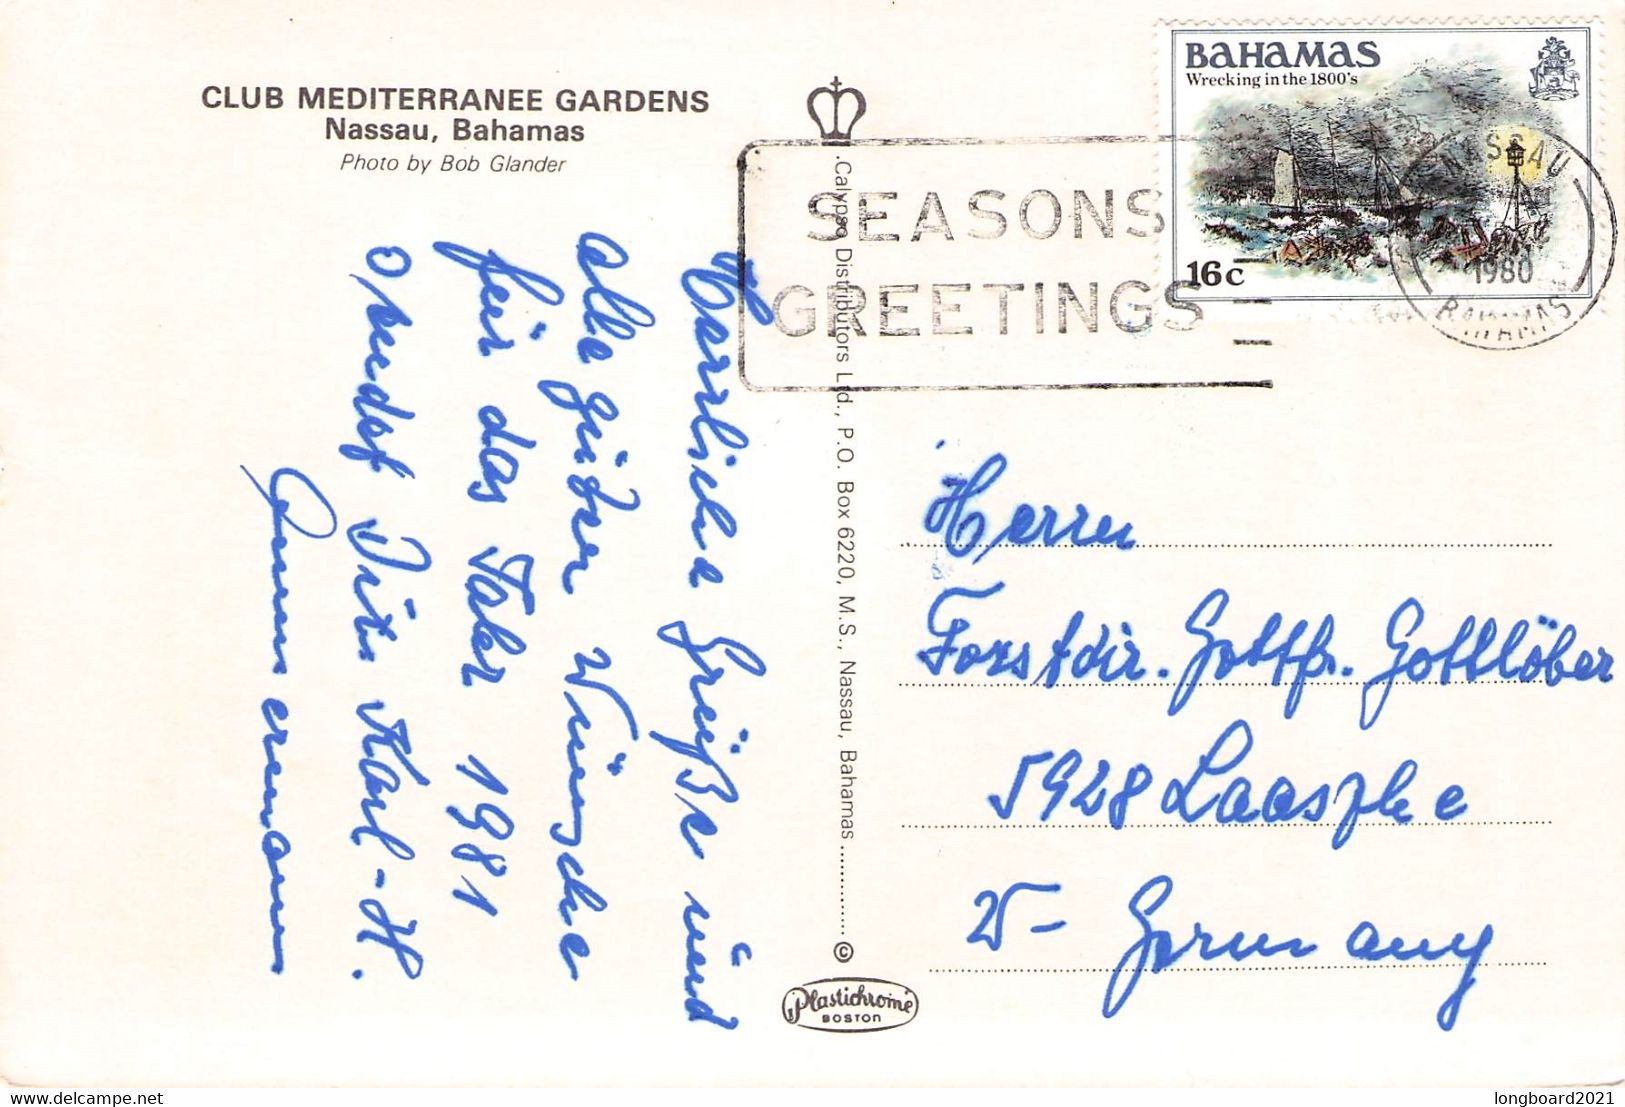 CLUB MEDITERRANEE GARDENS
Nassau, Bahamas
Photo by Bob Glander
Herzliche Grüße und
alle guten Wünsche
für das Jahr 1981
Karl-H.
Calypso Distributors Ltd., P.O. Box 6220, M.S., Nassau, Bahamas ............. ©
Plastichrome
BOSTON
SEASONS
GREETINGS
BAHAMAS
Wrecking in the 1800's
16c
NASSAU
1980
BAHAMAS
Herrn
Forstdir. Gottfr. Gottlöber
5928 Laasphe
W- Germany
longboard2021